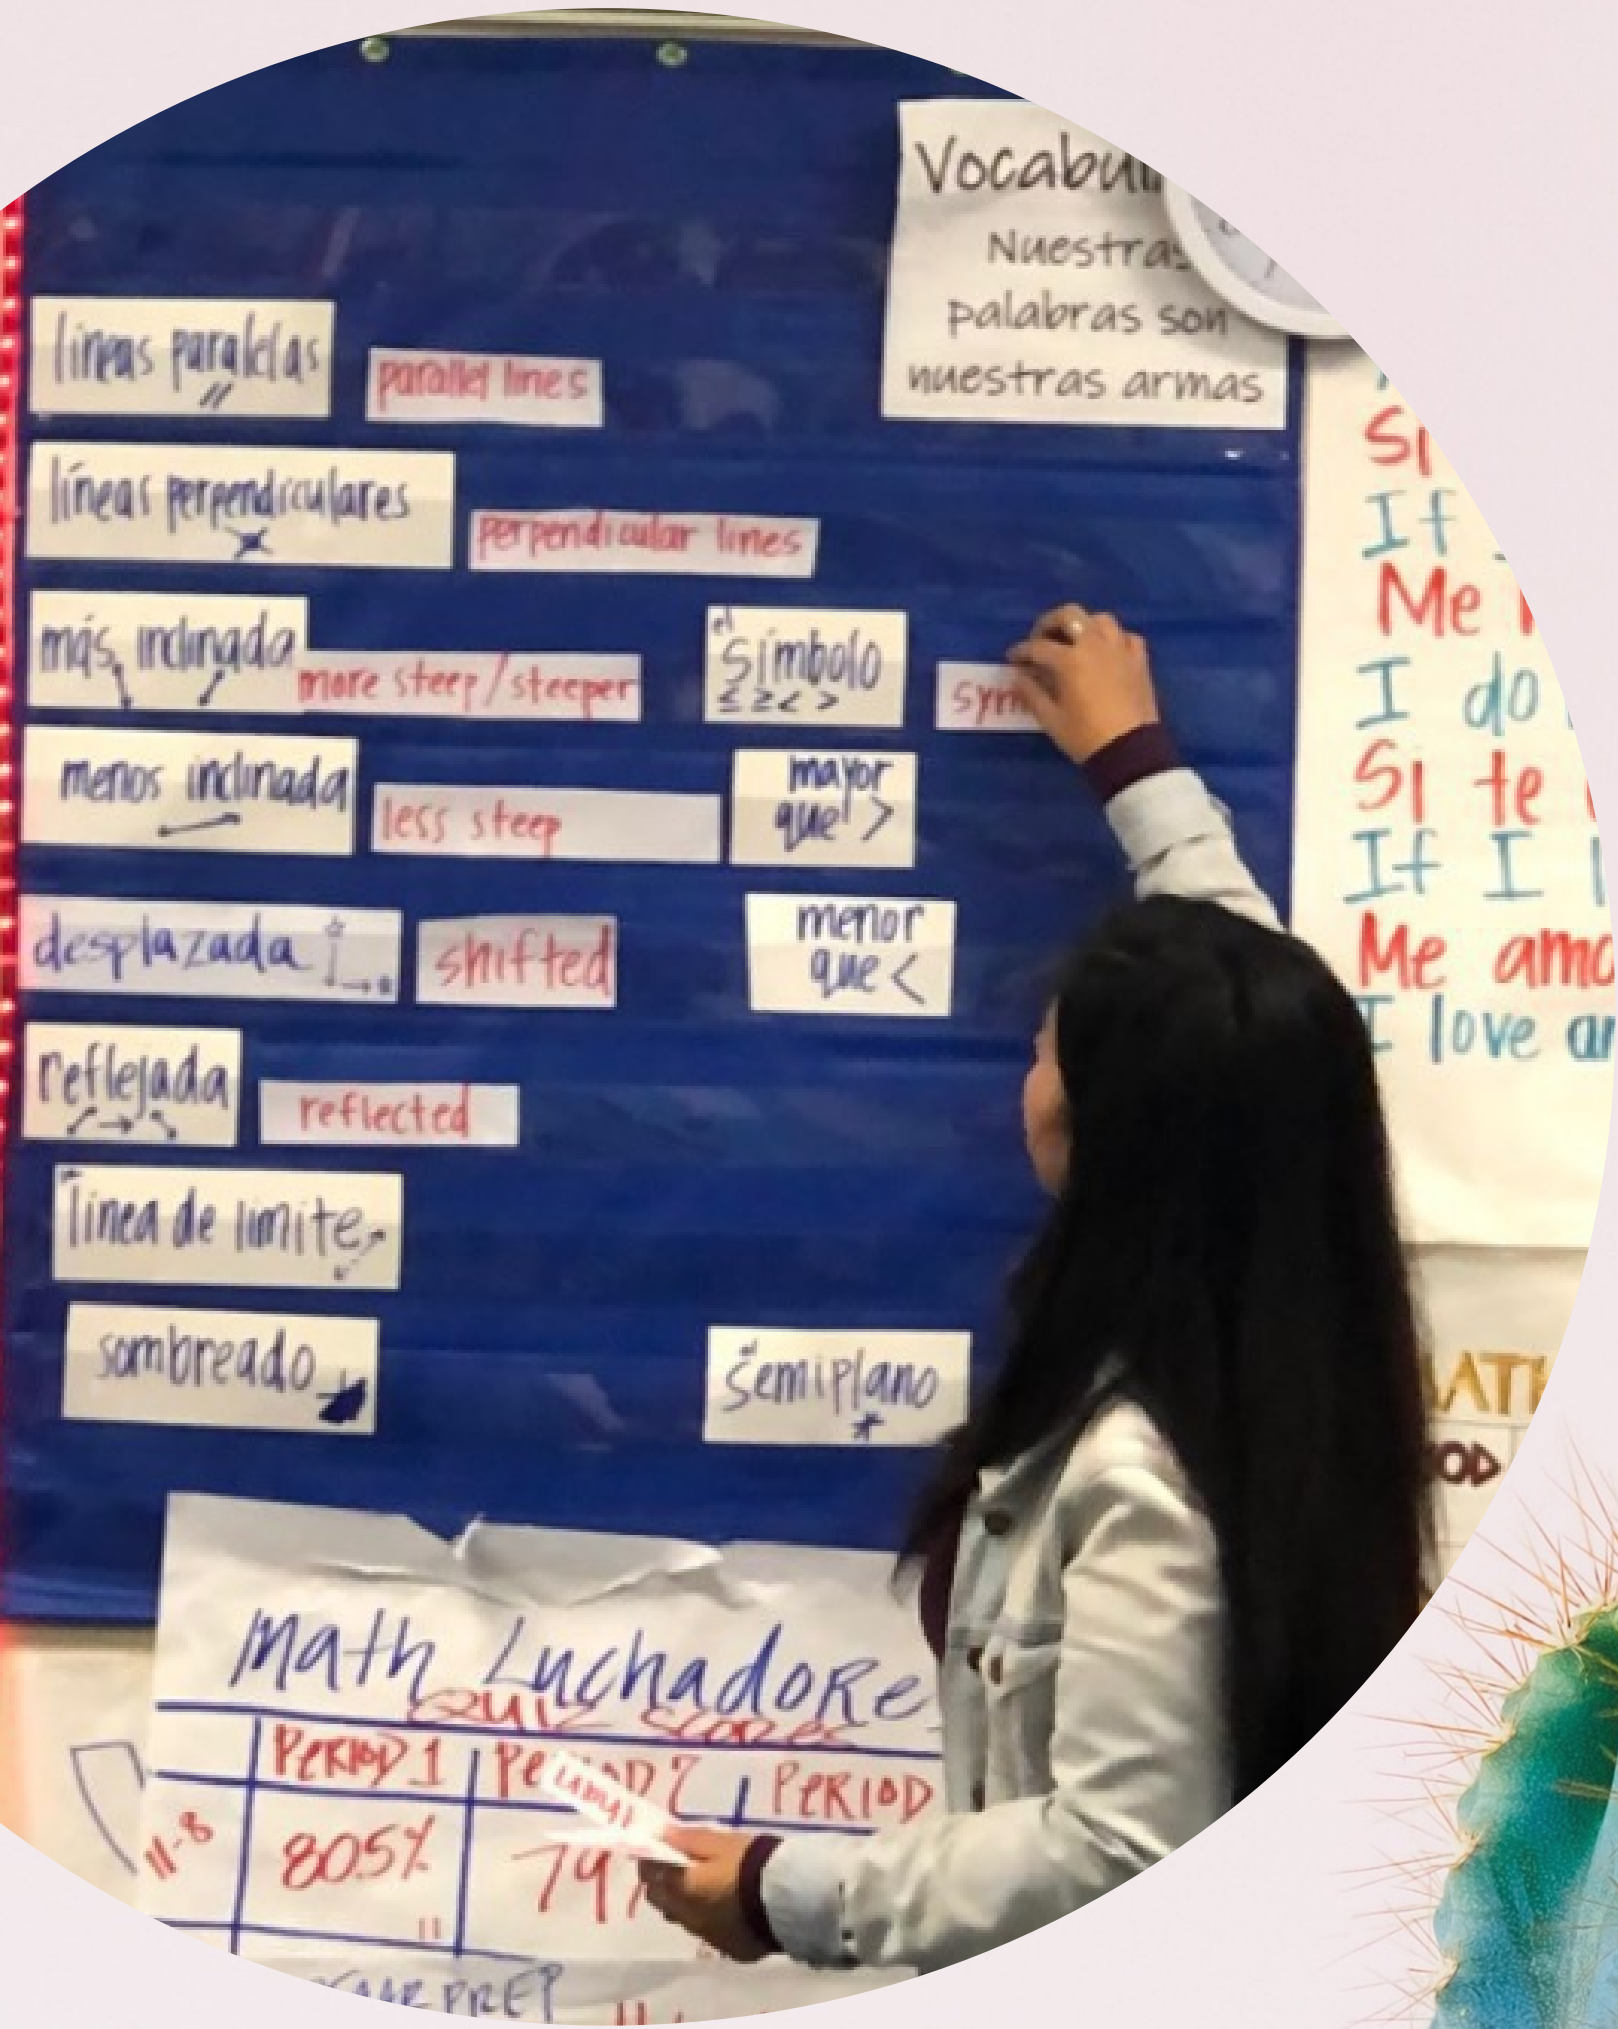 Nuestras
palabras son
nuestras armas
líneas paralelas
//
parallel lines
líneas perpendiculares
perpendicular lines
más inclinada
more steep/steeper
el
símbolo
≤ ≥ < >
menos inclinada
less steep
mayor
que >
desplazada
shifted
menor
que <
reflejada
reflected
línea de límite
sombreado
semiplano
Si
If
Me
I do
Si te
If I
Me
I love
Math
Quiz Scores
PERIOD 1
PERIOD
11-8
805%
79%
PREP